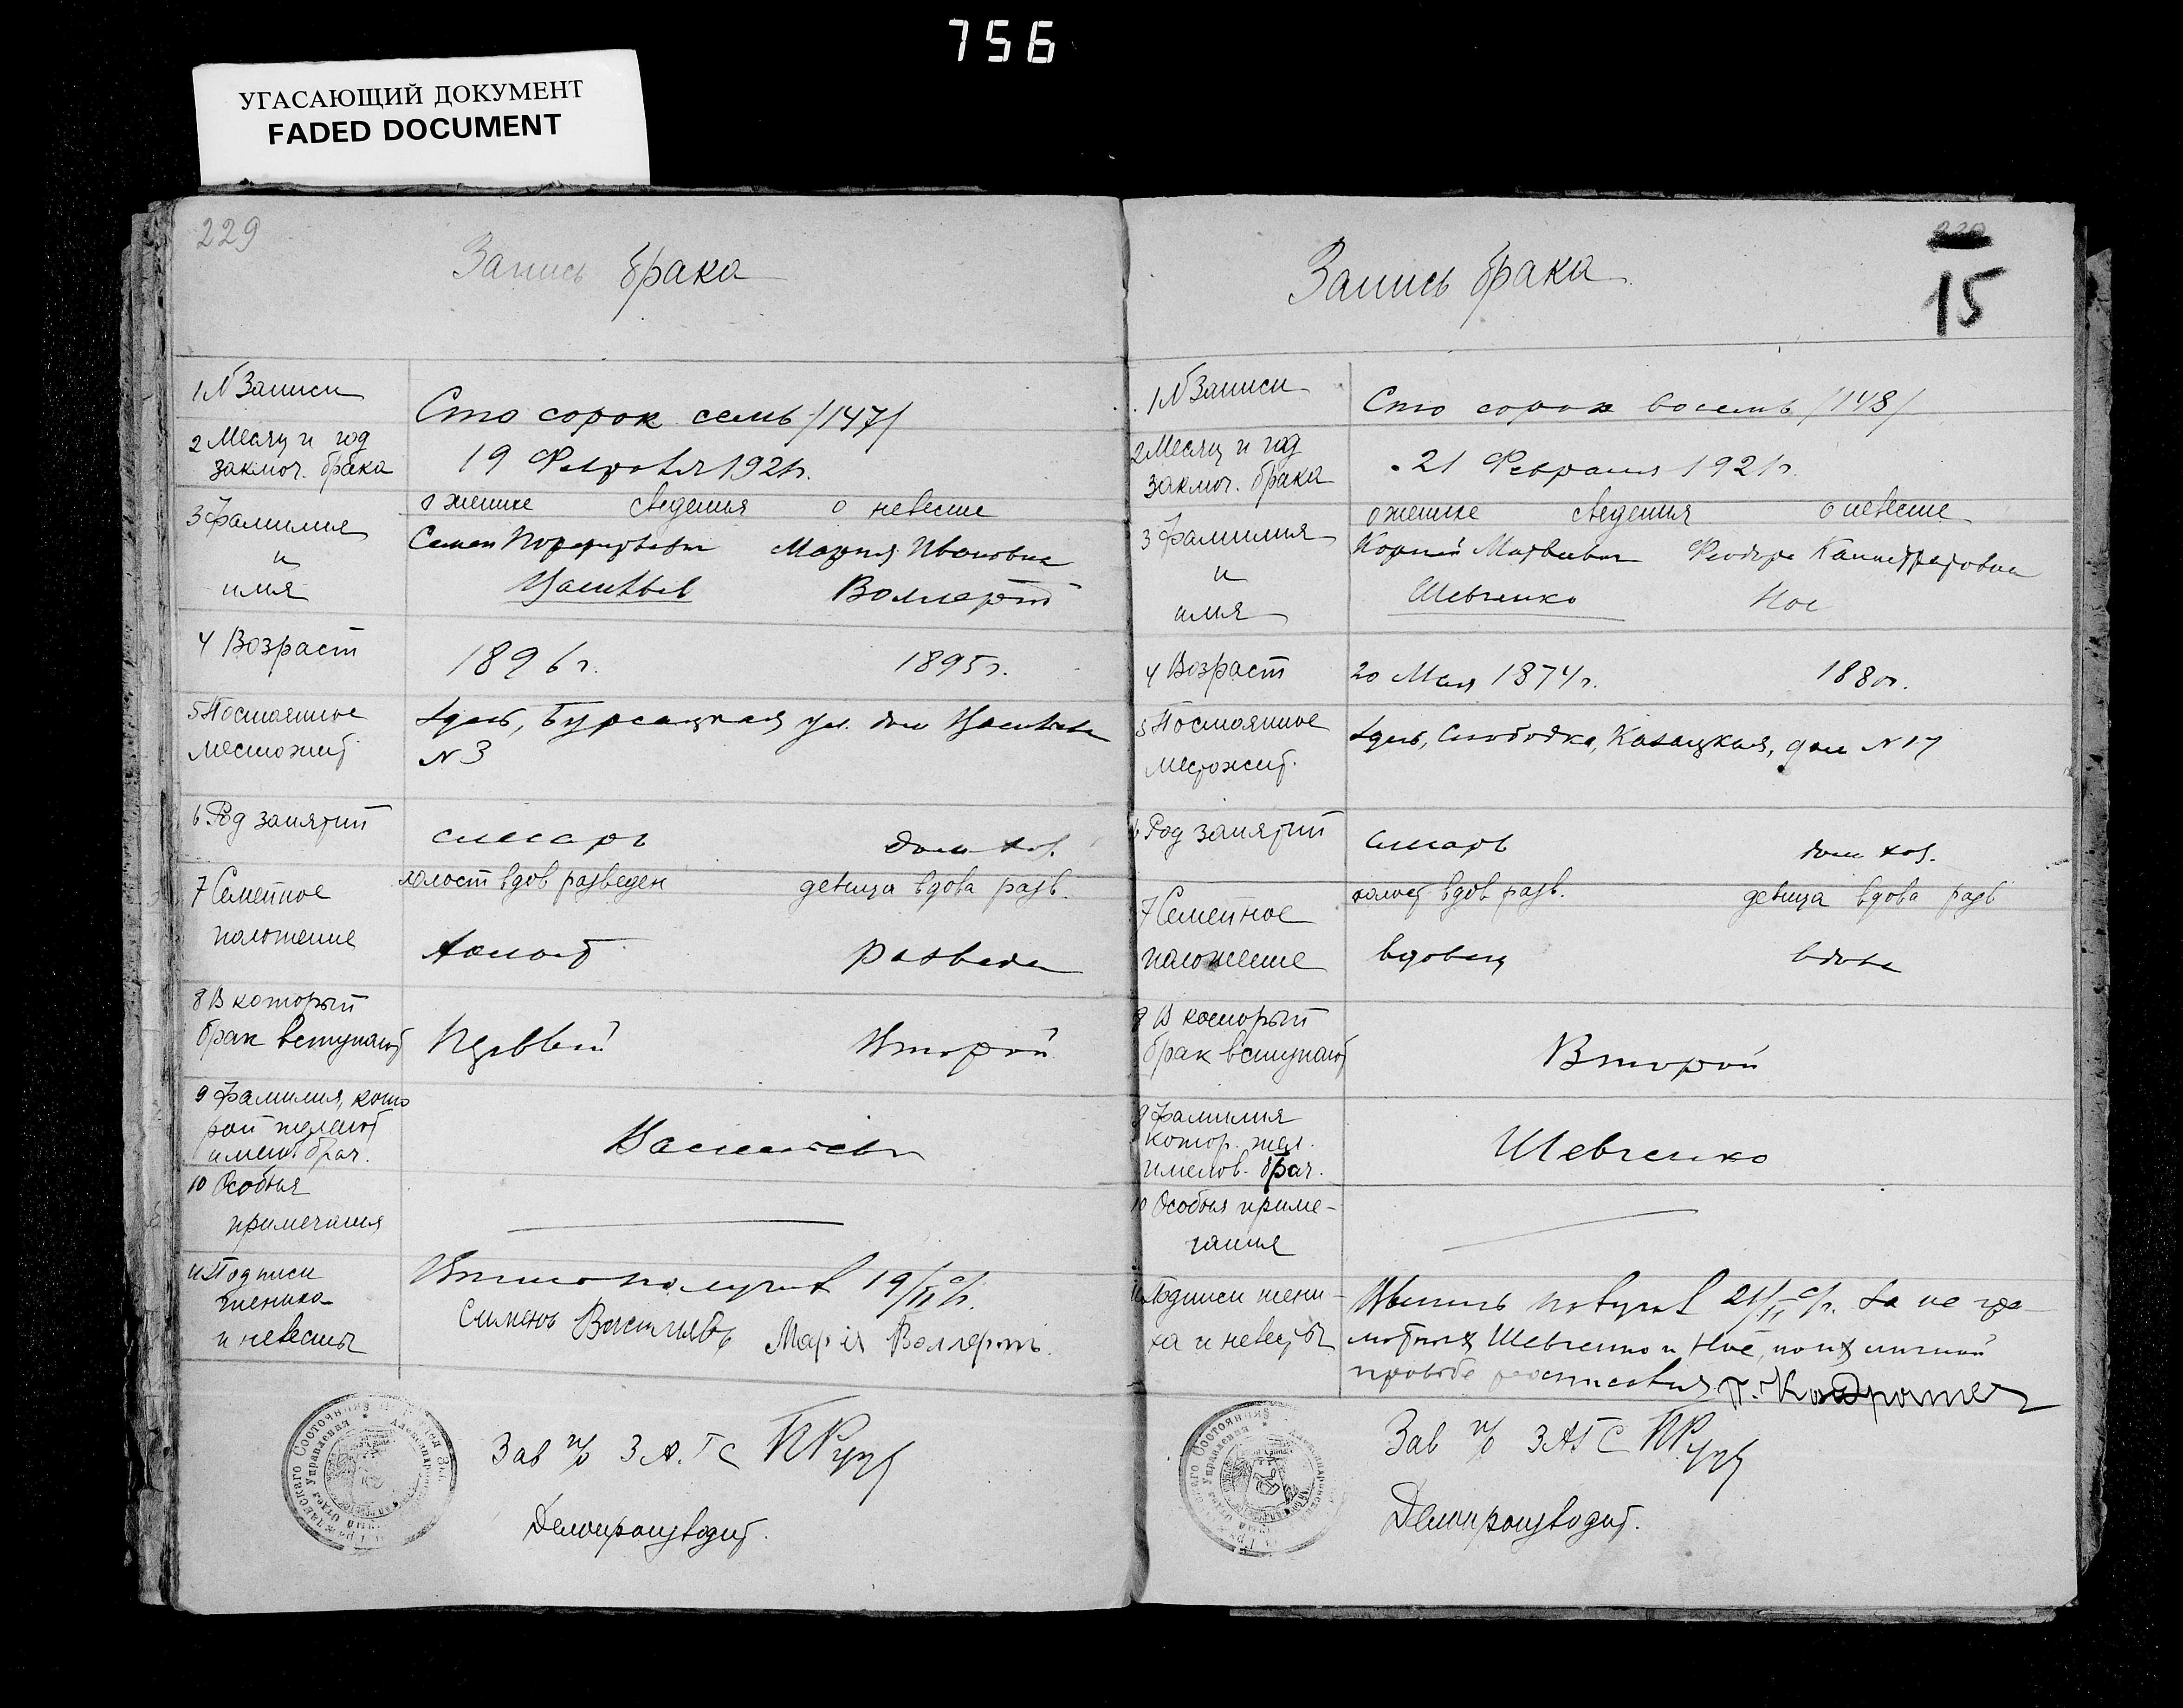 756
УГАСАЮЩИЙ ДОКУМЕНТ
FADED DOCUMENT
229
Запись брака
1 № Записи
Сто сорок семь /147/
2 Месяц и год
заключ. брака
19 Февраля 1921г.
3 Фамилия
и
имя
о женихе сведения о невесте
Семен Порфирьевич Мария Ивановна
Васильев Воллерт
4 Возраст
1896г. 1895г.
5 Постоянное
местожит.
Здесь, Бурсацкая ул. дом Васильева
№ 3
6 Род занятий
слесарь дом. хоз.
7 Семейное
положение
холост вдов разведен девица вдова разв.
холост разведена
8 В который
брак вступают
Первый Второй
9 Фамилия, кото
рой желают
имен. брач.
Васильевы
10 Особыя
примечания
11 Подписи
жениха
и невесты
получил 19/II с/г.
Сименъ Васильевъ Марiя Воллертъ.
Зав п/о З.А.Г.С
Делопроизводит.
15
Запись брака
1 № Записи
Сто сорок восемь /148/
2 Месяц и год
заключ. брака
21 Февраля 1921г.
3 Фамилия
и
имя
о женихе сведения о невесте
Корней Матвеевич Феодора Калистратовна
Шевченко Нос
4 Возраст
20 Мая 1874г. 1880г.
5 Постоянное
местожит.
Здесь, Слободка, Казацкая, дом № 17
6 Род занятий
слесарь дом. хоз.
7 Семейное
положение
холост вдов разв. девица вдова разв
вдовец вдова
8 В который
брак вступают
Второй
9 Фамилия
котор. жел.
именов. брач.
Шевченко
10 Особыя приме-
чания
11 Подписи жени-
ха и невесты
получил 21/II с/г. За не гра-
мотных Шевченко и Нос, по их личной
просьбе расписался
Зав п/о ЗАГС
Делопроизводит.